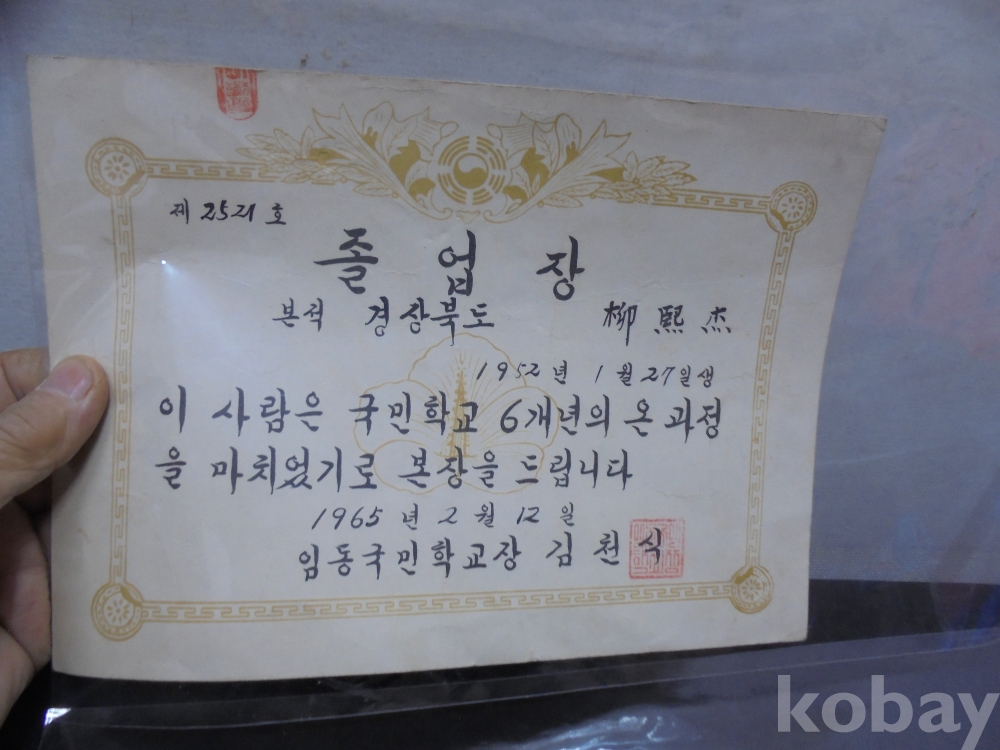 제 2521 호
졸 업 장
본적 경상북도 柳熙杰
1952년 1월 27일생
이 사람은 국민학교 6개년의 온 과정
을 마치었기로 본장을 드립니다
1965년 2월 12일
임동국민학교장 김천식
kobay